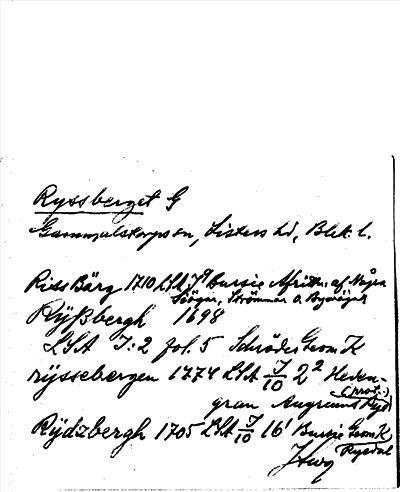 Ryssberget G
Gammalstorps sn, Listers hd, Blek. l.
Riss Bärg 1710 LSA J9 Bursie Afritn. af Några
Skogar, Strömmar o.
Rÿßbergh 1698
LSA J:2 fol. 5 Schröder Geom K
rÿssebergen 1774 LSA J/10 2² Heden-
gran (prot.)
Rÿdzbergh 1705 LSA J/10 16¹ Bursie Geom K
Rysdal